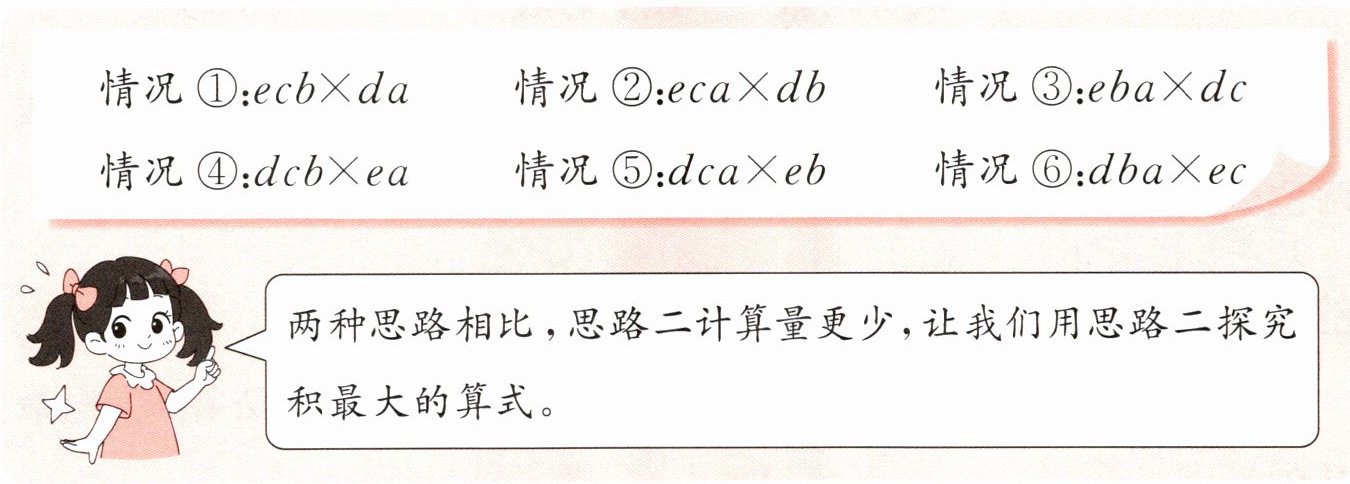 情况①:ecb×da 情况②:eca×db 情况③:eba×dc
情况④:dcb×ea 情况⑤:dca×eb 情况⑥:dba×ec
两种思路相比,思路二计算量更少,让我们用思路二探究
积最大的算式。